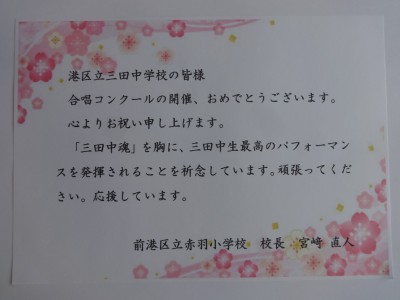 港区立三田中学校の皆様
合唱コンクールの開催、おめでとうございます。
心よりお祝い申し上げます。
「三田中魂」を胸に、三田中生最高のパフォーマン
スを発揮されることを祈念しています。頑張ってくだ
さい。応援しています。
前港区立赤羽小学校 校長 宮﨑 直人